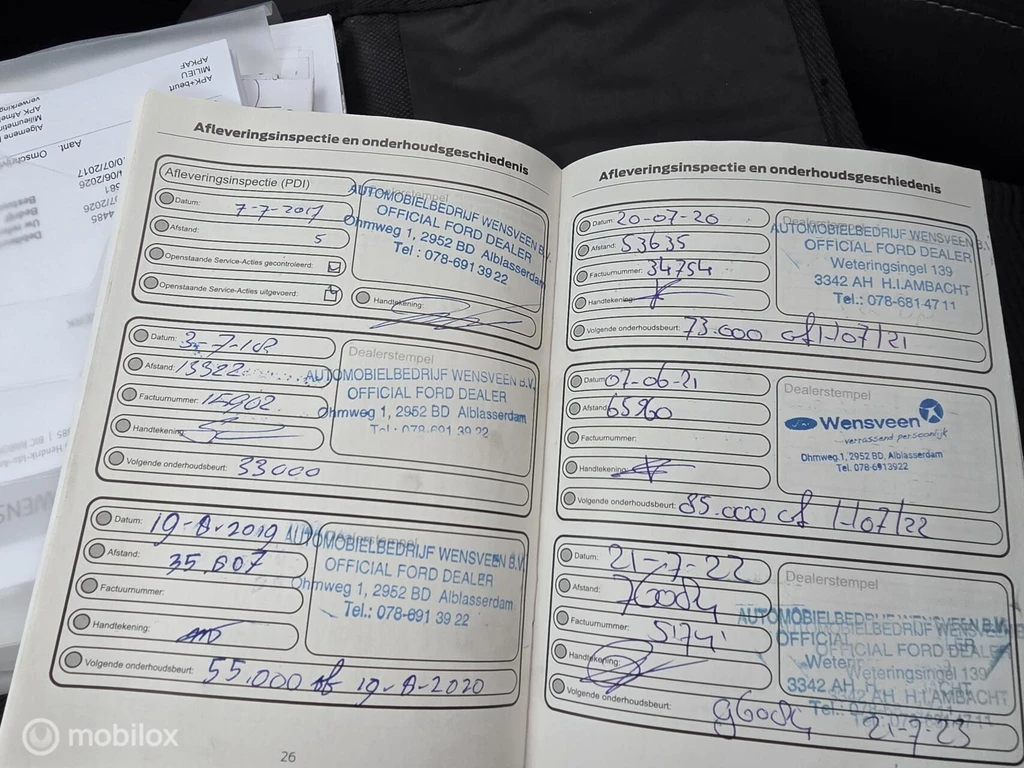 APK+beurt
MILIEU
APKAF
Afleveringsinspectie en onderhoudsgeschiedenis
Afleveringsinspectie (PDI)
Datum: 7-7-2017
Afstand: 5
Openstaande Service-Acties gecontroleerd:
Openstaande Service-Acties uitgevoerd:
Dealerstempel
AUTOMOBIELBEDRIJF WENSVEEN B.V.
OFFICIAL FORD DEALER
Ohmweg 1, 2952 BD Alblasserdam
Tel : 078-691 39 22
Handtekening:
Datum: 3-7-18
Afstand: 13322
Factuurnummer: 14902
Handtekening:
Volgende onderhoudsbeurt: 33000
Dealerstempel
AUTOMOBIELBEDRIJF WENSVEEN B.V.
OFFICIAL FORD DEALER
Ohmweg 1, 2952 BD Alblasserdam
Tel: 078-691 39 22
Datum: 19-8-2019
Afstand: 35.607
Factuurnummer:
Handtekening:
Volgende onderhoudsbeurt: 55.000 of 19-8-2020
Dealerstempel
AUTOMOBIELBEDRIJF WENSVEEN B.V.
OFFICIAL FORD DEALER
Ohmweg 1, 2952 BD Alblasserdam
Tel.: 078-691 39 22
26
Afleveringsinspectie en onderhoudsgeschiedenis
Datum: 20-07-20
Afstand: 53635
Factuurnummer: 34754
Handtekening:
Volgende onderhoudsbeurt: 73.000 of 1-07/21
Dealerstempel
AUTOMOBIELBEDRIJF WENSVEEN B.V.
OFFICIAL FORD DEALER
Weteringsingel 139
3342 AH H.I.AMBACHT
Tel.: 078-681 47 11
Datum: 07-06-21
Afstand: 65960
Factuurnummer:
Handtekening:
Volgende onderhoudsbeurt: 85.000 of 1-07/22
Dealerstempel
Wensveen
verrassend persoonlijk
Ohmweg 1, 2952 BD, Alblasserdam
Tel. 078-6913922
Datum: 21-7-22
Afstand: 76084
Factuurnummer: 51741
Handtekening:
Volgende onderhoudsbeurt: 96084 21-7-23
Dealerstempel
AUTOMOBIELBEDRIJF WENSVEEN B.V.
OFFICIAL FORD DEALER
Weteringsingel 139
3342 AH H.I.AMBACHT
Tel.: 078-681 47 11
mobilox